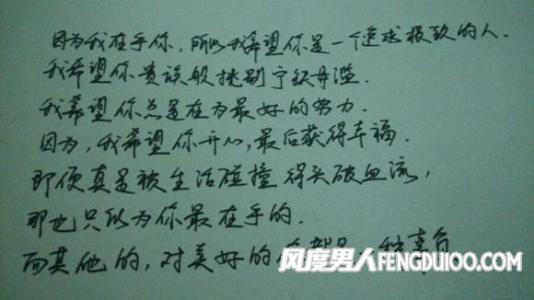 因为我在乎你，所以我希望你是一个追求极致的人.
我希望你贵族般挑剔宁缺毋滥.
我希望你总是在为最好的努力.
因为，我希望你开心，最后获得幸福.
即便真是被生活碰撞得头破血流，
那也只以为你最在乎的.
而其他的，对美好的 都是一种辜负
风度男人FENGDU100.COM